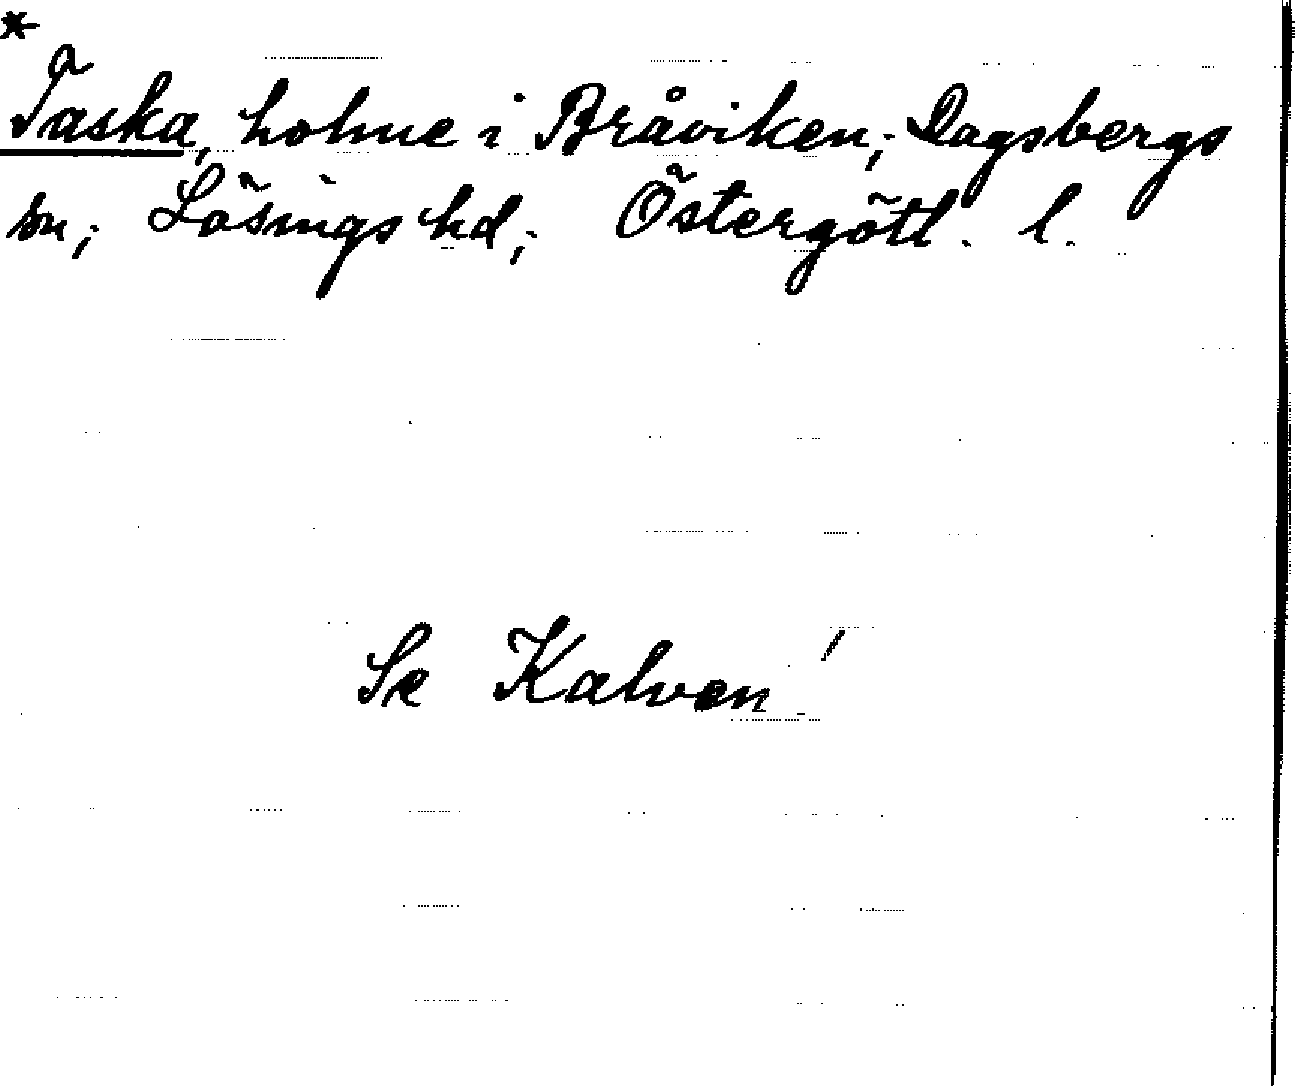 *
Taska, holme i Bråviken; Dagsbergs
sn; Lösings hd; Östergötl. l.
Se Kalven!